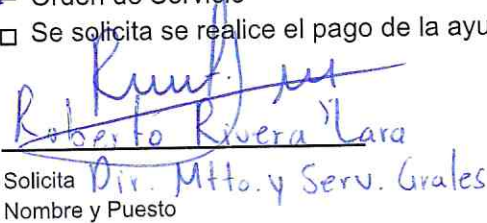 Orden de Servicio
□ Se solicita se realice el pago de la ayu
Roberto Rivera Lara
Solicita Dir. Mtto. y Serv. Grales
Nombre y Puesto